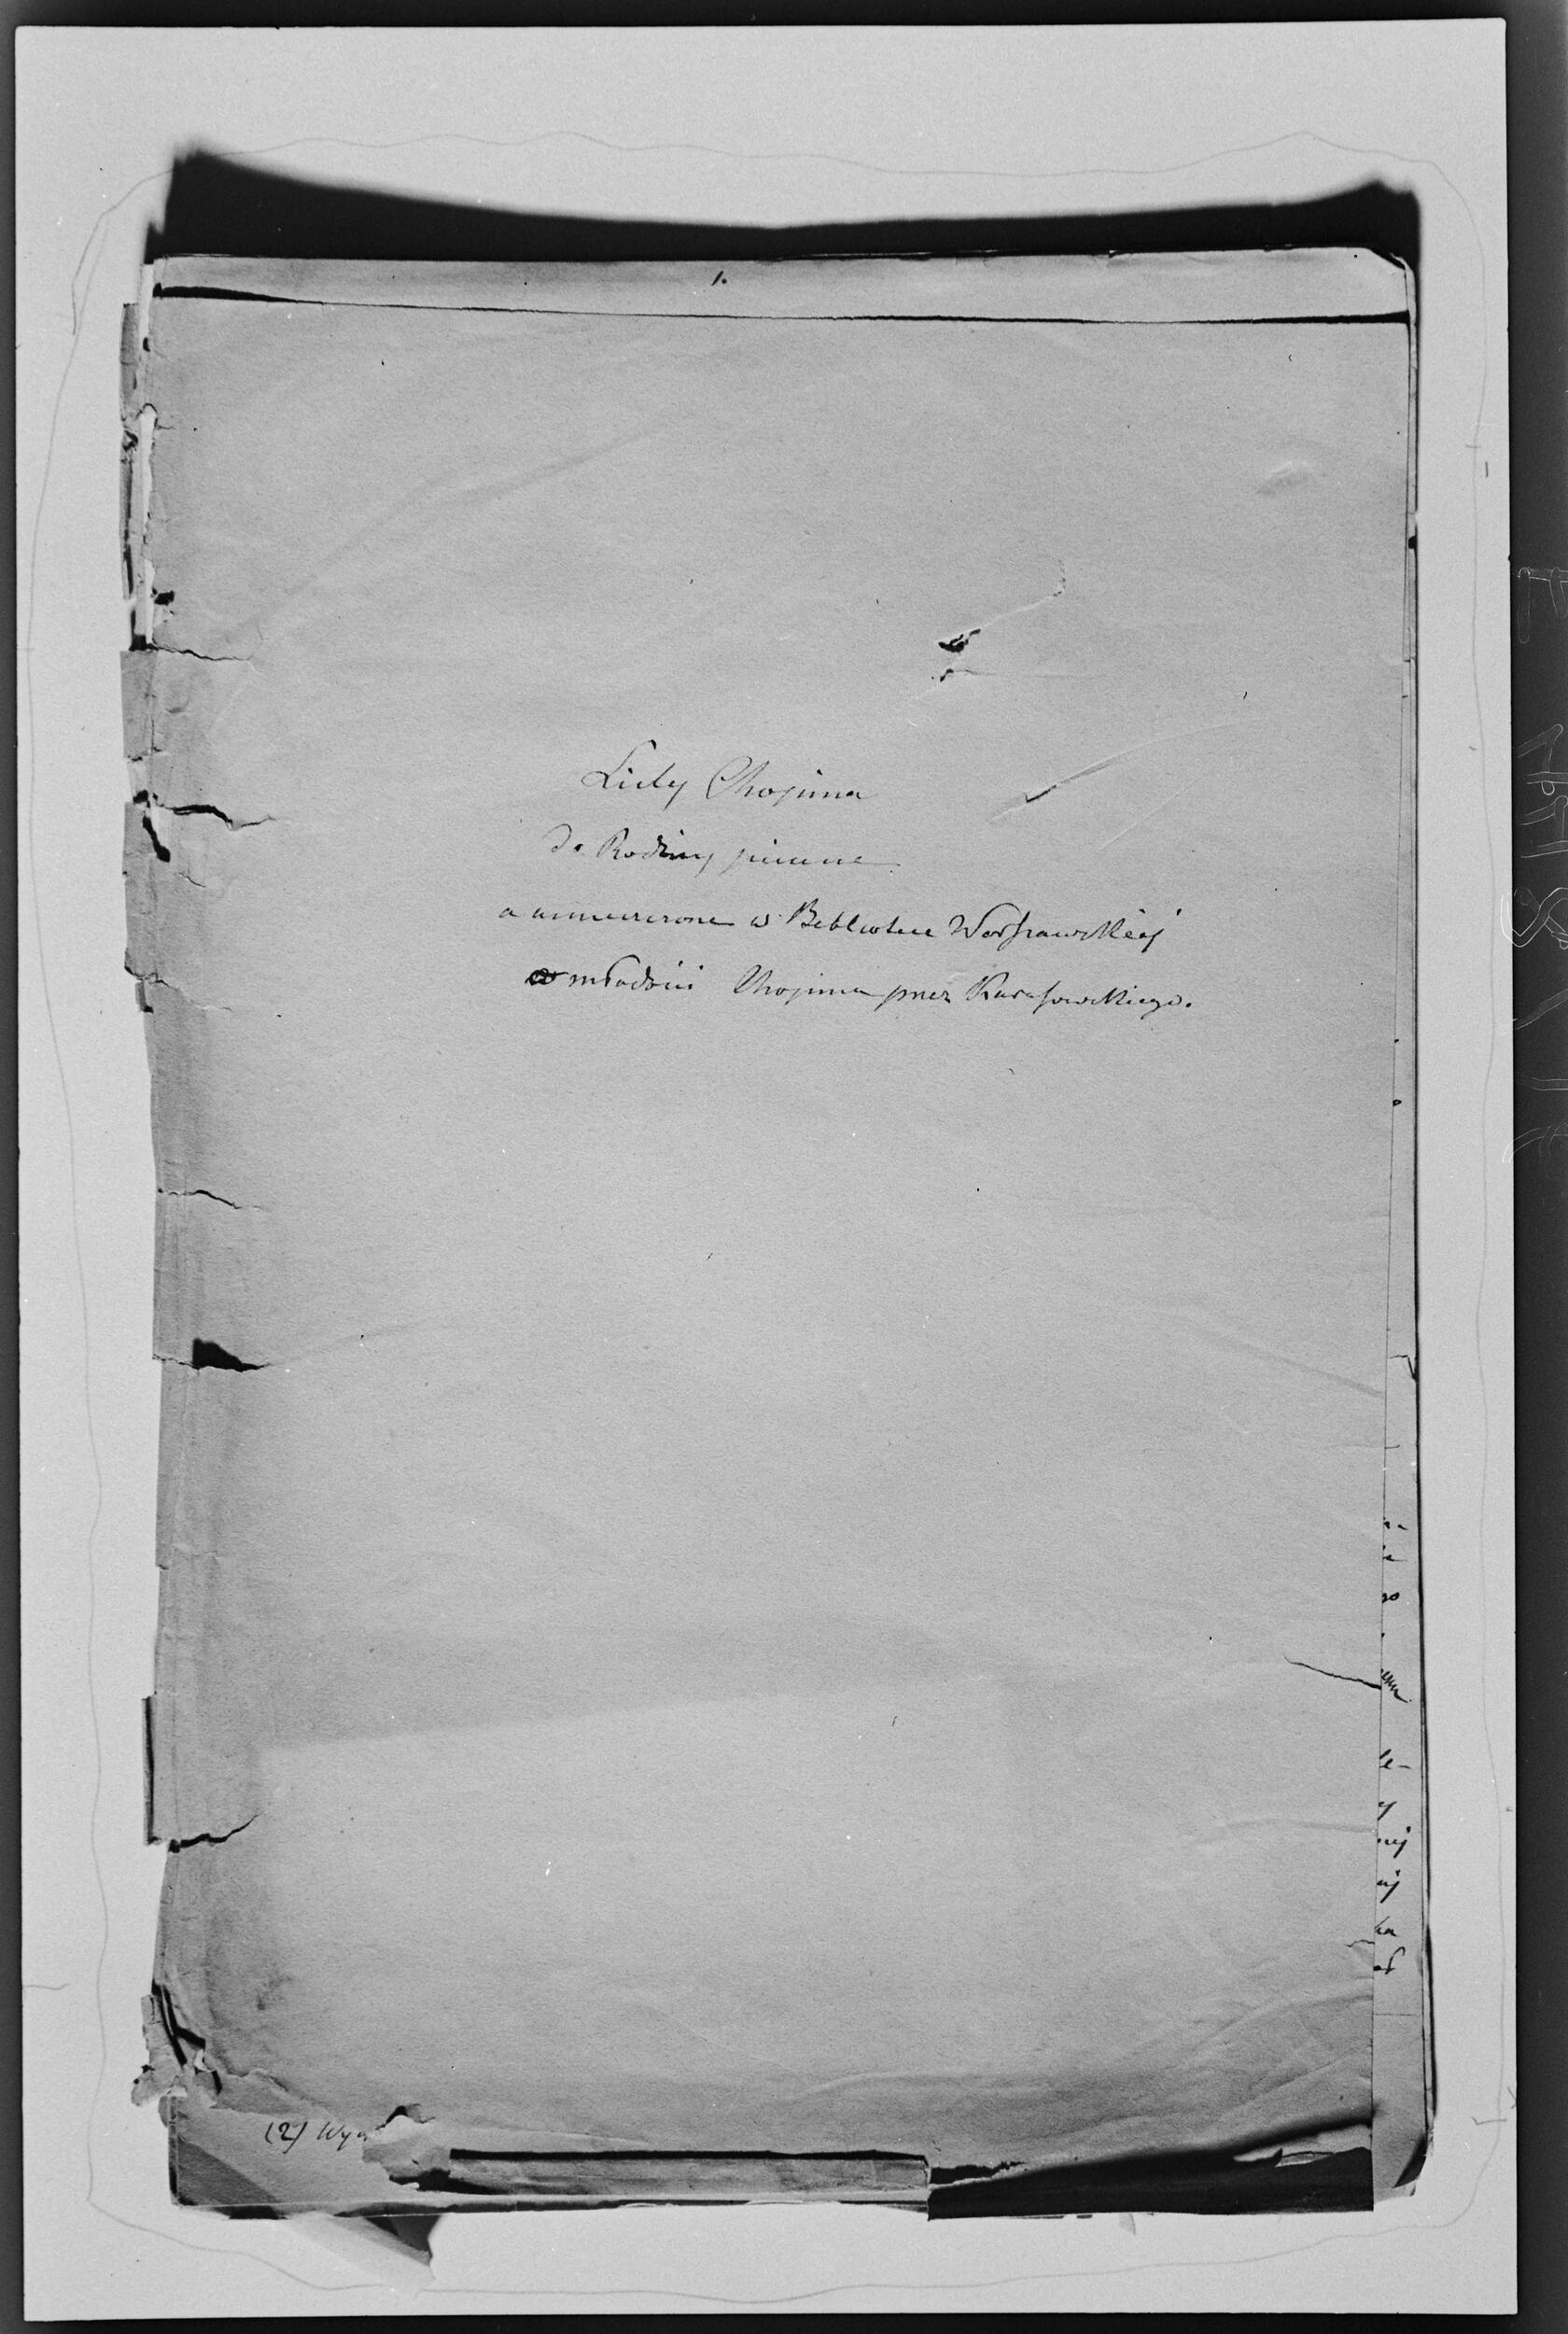 1.
Listy Chopina
do Rodziny pisane
a umieszczone w Bibliotece Warszawskiéj
w młodości Chopina przez Karasowskiego.
(2)